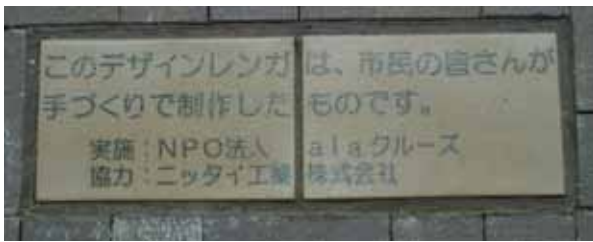 このデザインレンガは、市民の皆さんが
手づくりで制作したものです。
実施：NPO法人 alaクルーズ
協力：ニッタイ工業株式会社